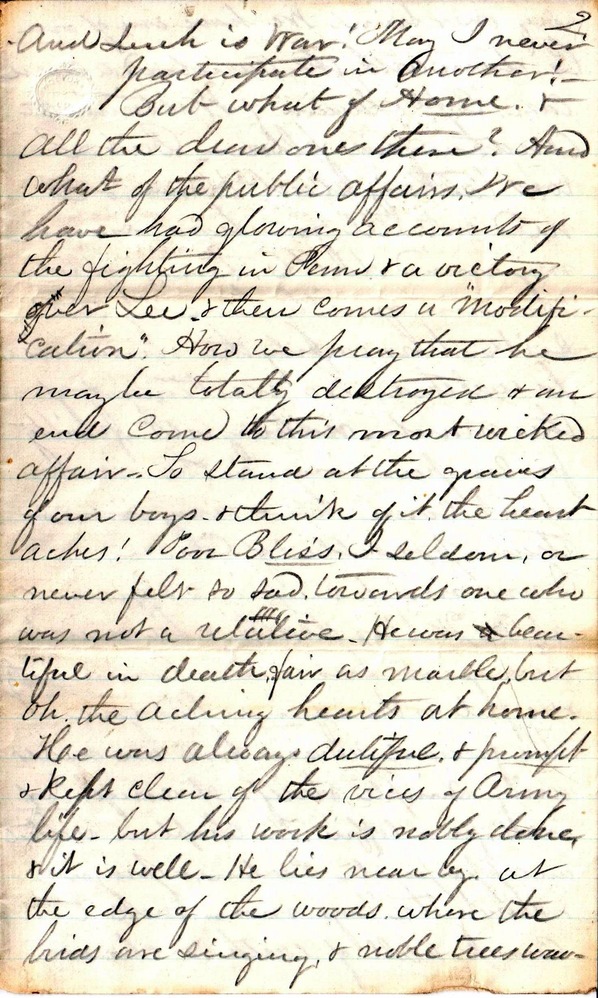 2
And Such is War! May I never
participate in Another!-
But what of Home. &
all the dear ones there? And
what of the public affairs. We
have had glowing accounts of
the fighting in Penn & a victory
over Lee, & then comes a "modifi-
cation". How we pray that he
may be totally destroyed & an
end come to this most wicked
affair - To stand at the graves
of our boys - & think of it, the heart
aches! Poor Bliss, I seldom, or
never felt so sad, towards one who
was not a relative. He was beau-
tiful in death, fair as marble, but
Oh, the aching hearts at home.
He was always dutiful, & prompt
& kept clear of the vices of Army
life - but his work is nobly done,
& it is well - He lies near by, at
the edge of the woods, where the
birds are singing, & noble trees wav-